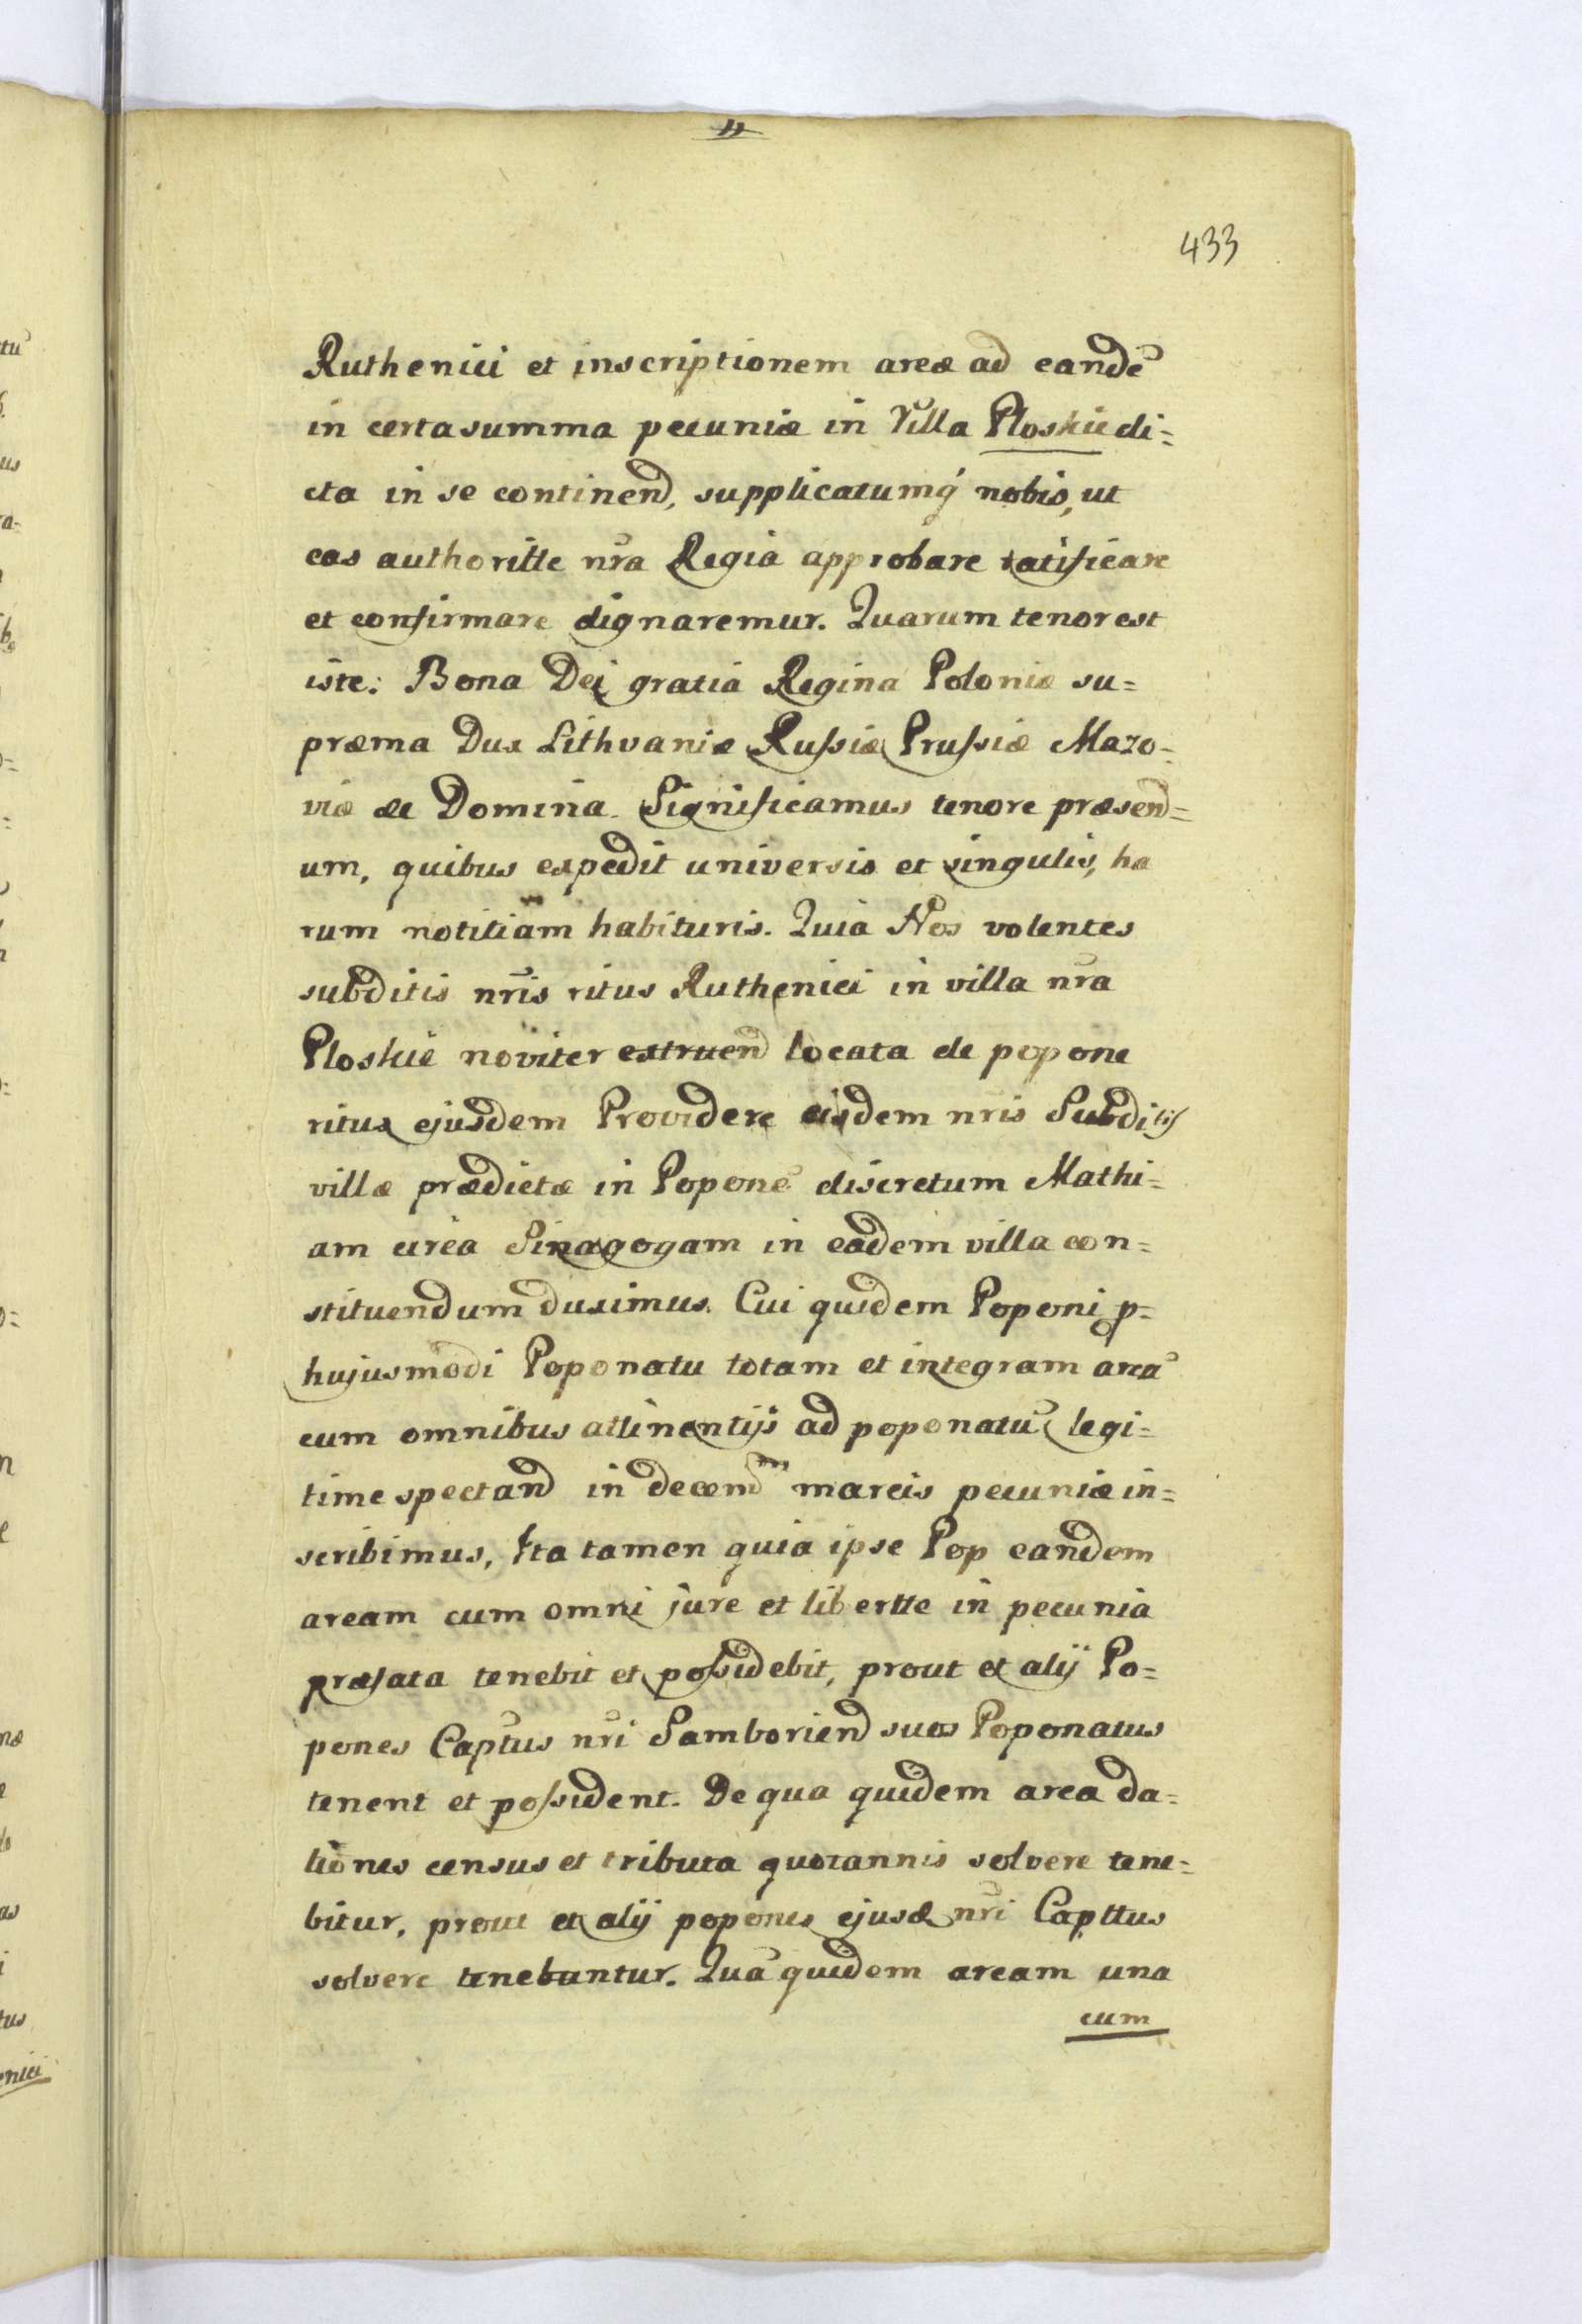 11
433
Ruthenici et inscriptionem areæ ad eandē
in certa summa pecuniæ in Villa Ploskie di=
cta in se continend, supplicatumq́ nobis, ut
eas authoritte nr̃a Regia approbare ratificare
et confirmare dignaremur. Quarum tenor est
iste: Bona Dei gratia Regina Poloniæ su=
præma Dux Lithvaniæ Rusſiæ Prusſiæ Mazo=
viæ &c Domina. Significamus tenore præsend=
um, quibus expedit universis et singulis, ha
rum notitiam habituris. Quia Nos volentes
subditis nr̃is ritus Ruthenici in villa nr̃a
Ploskie noviter extruend locata de popone
ritus ejusdem Providere eisdem nris Subditis
villæ prædictæ in Poponē discretum Mathi=
am circa Sinagogam in eadem villa con=
stituendum duximus. Cui quidem Poponi p=
hujusmodi Poponatu totam et integram areā
cum omnibus attinentijs ad poponatū legi=
time spectand in decem marcis pecuniæ in=
scribimus, Ita tamen quia ipse Pop eandem
aream cum omni jure et libertte in pecunia
præfata tenebit et posſidebit, prout et alij Po=
pones Captus nr̃i Samboriend suos Poponatus
tenent et posſident. De qua quidem area da=
tiones census et tributa quotannis solvere tene=
bitur, prout et alij popones ejusd nr̃i Capttus
solvere tenebuntur. Quā quidem aream una
cum